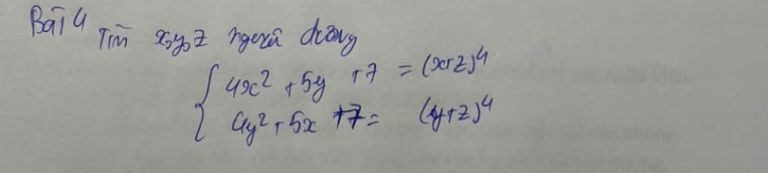 Bài 4 Tìm x,y,z nguyên dương
4x² + 5y + 7 = (x+z)⁴
4y² + 5x + 7 = (y+z)⁴